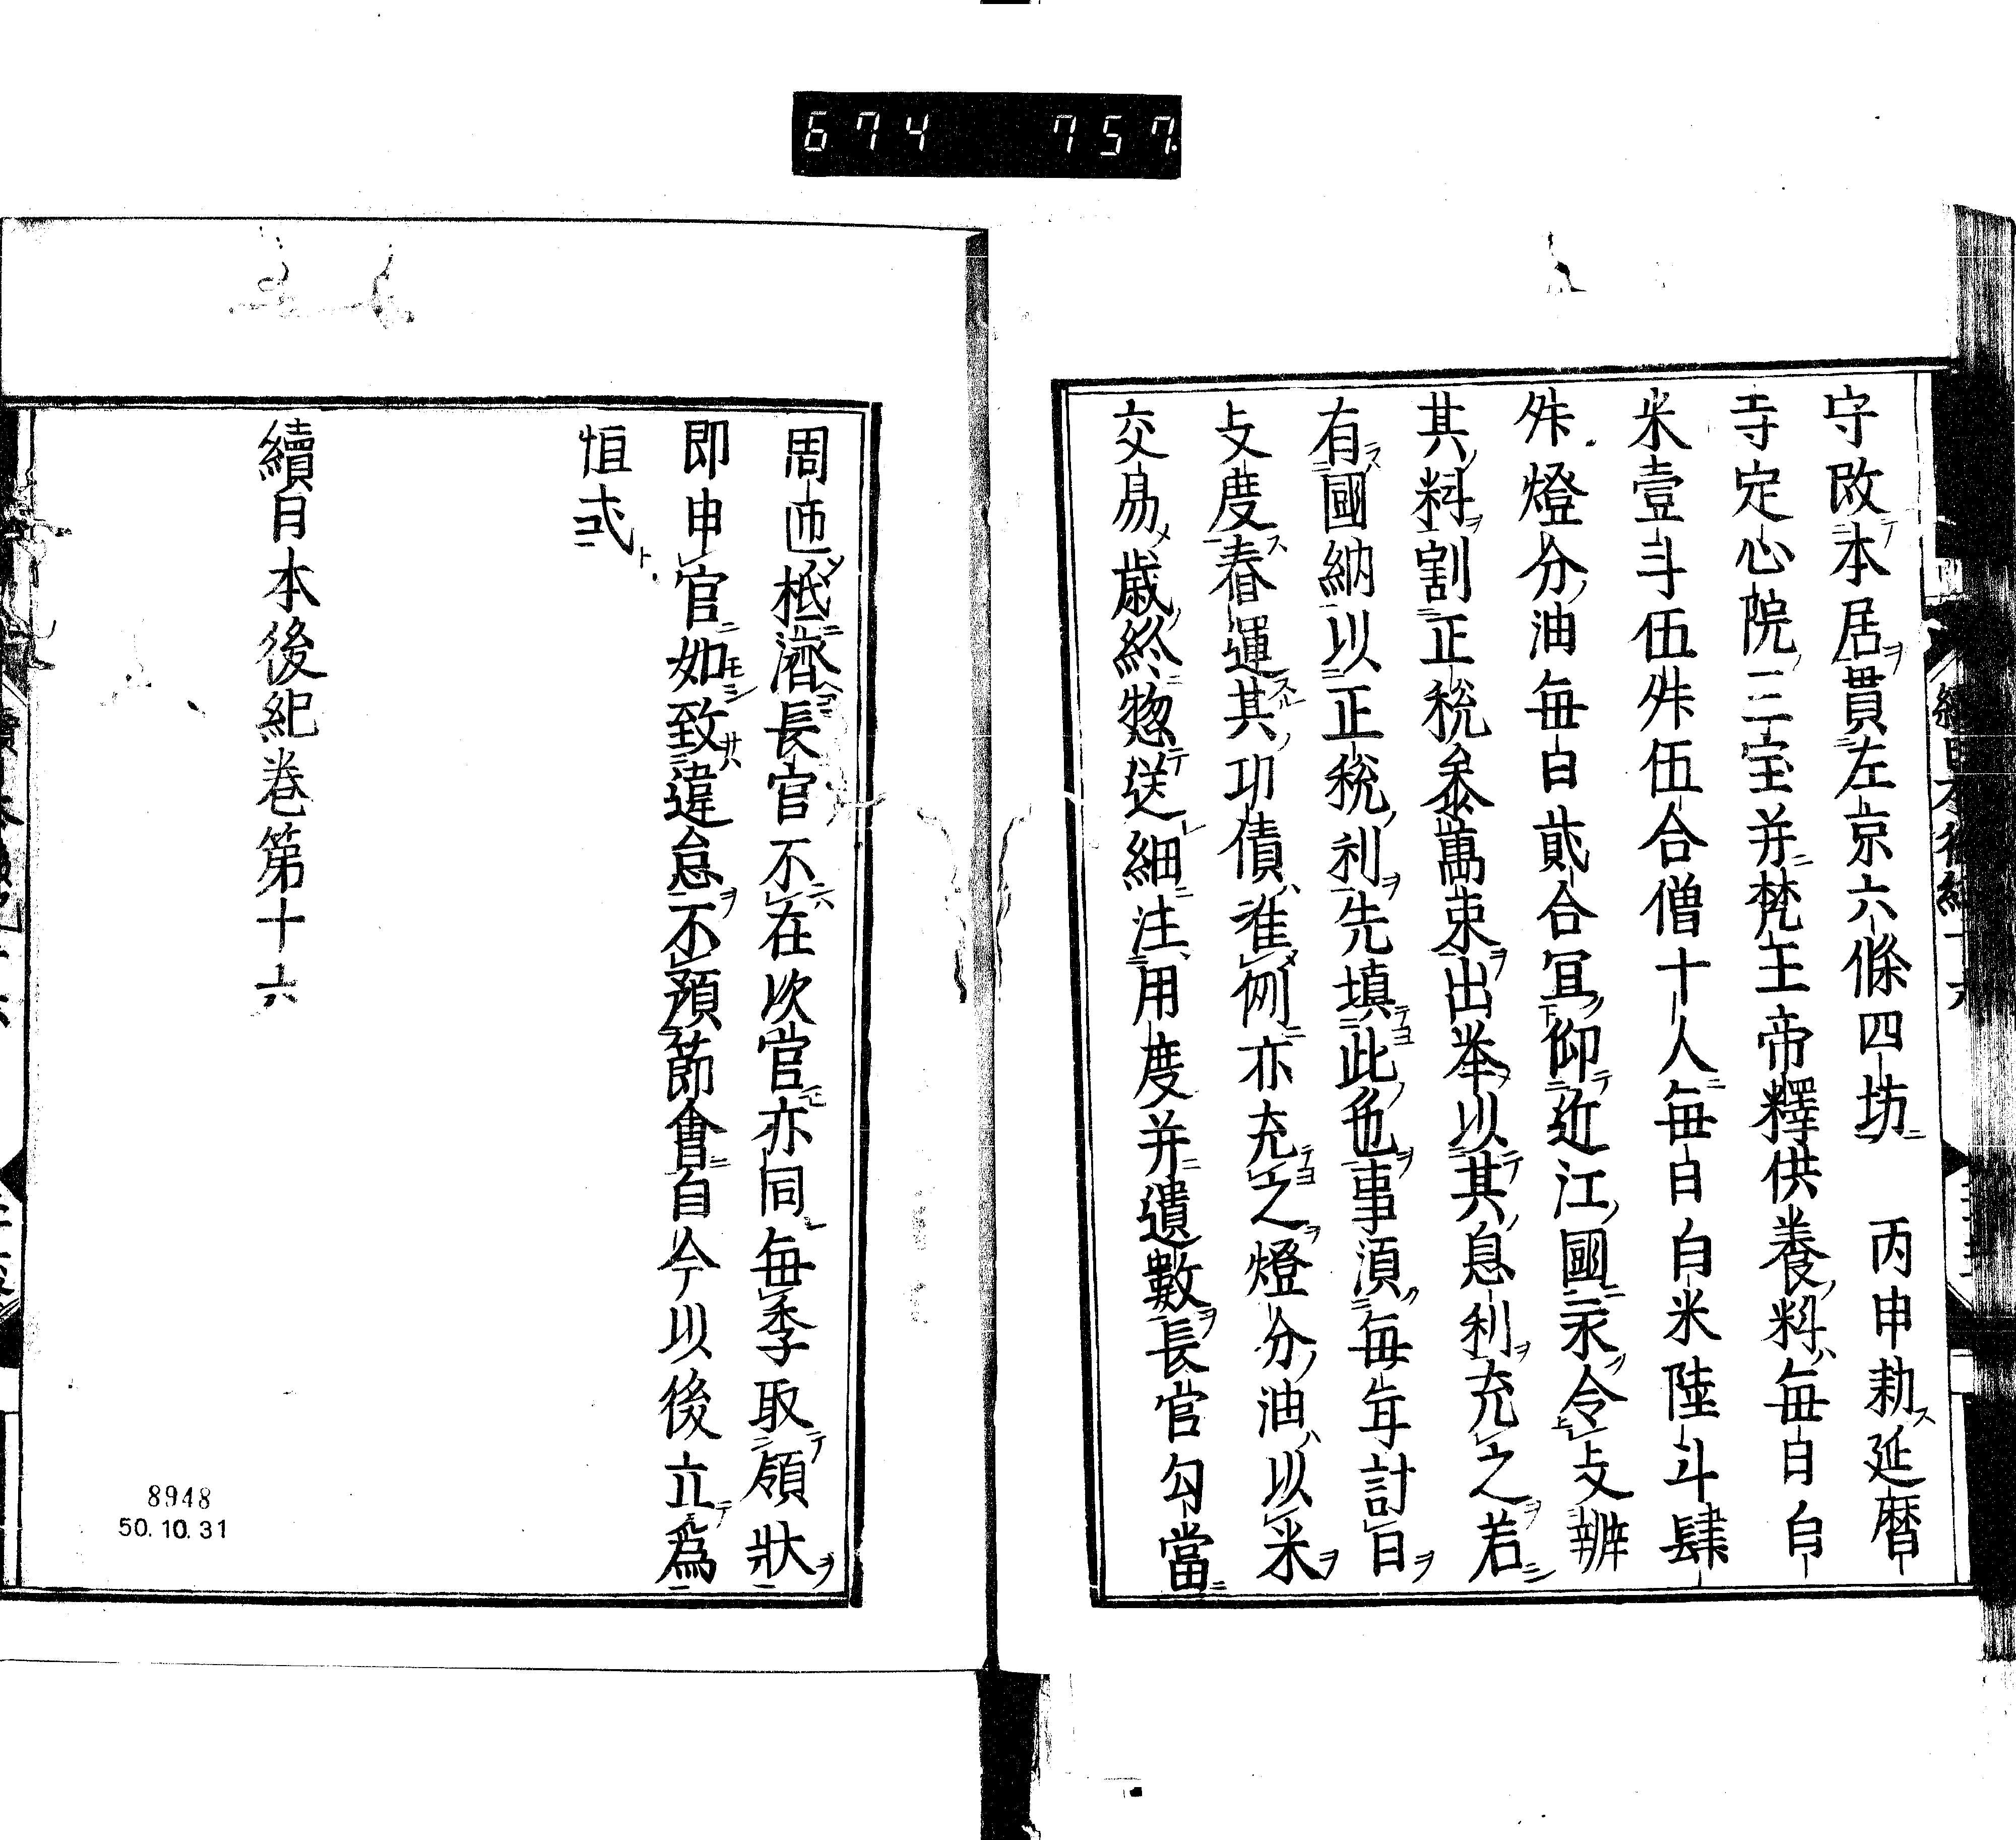 674 757
守改本居貫左京六條四坊 丙申勑延暦
寺定心院三宝并梵王帝釋供養料毎日白
米壹斗伍舛伍合僧十人毎日白米陸斗肆
舛燈分油毎日貳合宜仰近江國永令支辨
其料割正稅叅萬束出挙以其息利充之若
有國納以正稅利先填此色事須毎年計日
支度舂運其功賃准例亦充之燈分油以米
交易歳終惣送細注用度并遺數長官勾當
周迊柢濟長官不在次官亦同毎季取領狀
即申官如致違怠不預節會自今以後立為
恒式
續日本後紀巻第十六
8948
50.10.31